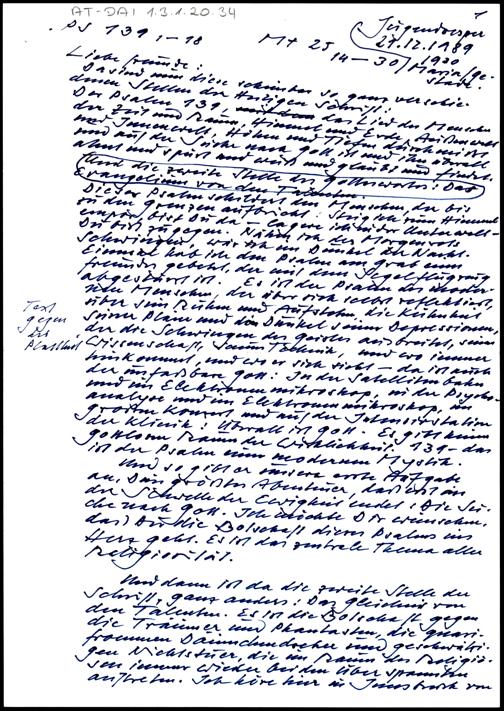 AT-DAI 1.3.1.20.34
1
Jugendvesper
27.12.1989
19³⁰
Maria/ge-
stade.
PS 139 1-18 Mt 25 14-30
Liebe Freunde:
Da sind nun diese schönsten so ganz verschie-
denen Stellen der Heiligen Schrift:
Der Psalm 139, das Lied des Menschen
der Zeit und Raum, Himmel und Erde, Außenwelt
und Innenwelt, Höhen und Tiefen durchmißt
und auf der Suche nach Gott ist und ihn überall
ahnt und spürt und weiß und glaubt und findet.
Und die zweite Stelle des Gotteswortes: Das
Evangelium von den Talenten.
Dieser Psalm schildert den Menschen, der bis
zu den Grenzen aufbricht: Steig ich zum Himmel
empor, bist Du da - lagere ich in der Unterwelt -
Du bist zugegen. Nähm ich der Morgenröte
Schwingen, wär ich im Dunkel der Nacht.
Einmal hab ich den Psalm am Grab eines
Freundes gebetet, der mit dem Segelflugzeug
abgestürzt ist. Es ist der Psalm des moder-
nen Menschen, der über sich selbst reflektiert,
über sein Ruhen und Aufstehn, die Kühnheit
seiner Pläne und das Dunkel seiner Depressionen,
der die Schwingen des Geistes ausbreitet, seine
Wissenschaft, seine Technik, und wo immer
hinkommt, und wo er sich sieht - da ist auch
der unfaßbare Gott: In der Satellitenbahn
und im Elektronenmikroskop, in der Psycho-
analyse und im Elektronenmikroskop, im
großen Konzert und auf der Intensivstation
der Klinik: Überall ist Gott. Es gibt keinen
gottlosen Raum der Wirklichkeit. 139 - das
ist der Psalm einer modernen Mystik.
Und so gibt er unsere erste Aufgabe
an. Dein größtes Abenteuer, das erst an
der Schwelle der Ewigkeit endet: Die Su-
che nach Gott. Ich möchte Dir wünschen,
daß Dir die Botschaft dieses Psalms ins
Herz geht. Es ist das zentrale Thema aller
Religiosität.
Und dann ist da die zweite Stelle der
Schrift, ganz anders: Das Gleichnis von
den Talenten. Es ist die Botschaft gegen
die Träumer und Phantasten, die quasi-
frommen Daumendreher und geschwätzi-
gen Nichtstuer, die im Raum des Religiö-
sen immer wieder bei den Überspannten
auftreten. Ich höre hier in Innsbruck von
Text
gegen
das